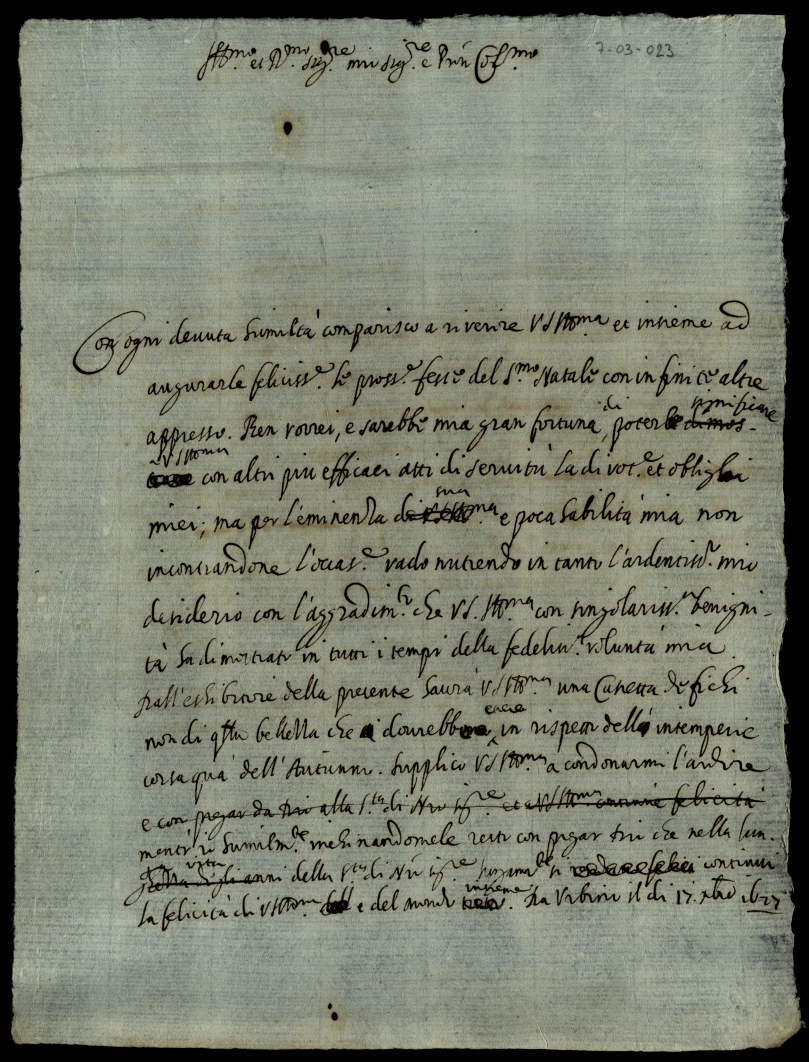 Ill.mo et R.mo Sig.re mio Sig.re e Pron Col.mo
7-03-023
Con ogni devuta humiltà comparisco a riverire VS Ill.ma et insieme ad
augurarle feliciss.e le pross.e feste del S.mo Natale con infinite altre
significare
appresso. Ben vorrei, e sarebbe mia gran fortuna, di poterle dimos-
VS Ill.ma
con altri più efficaci atti di servitù la divot.e et oblighi
sua
miei; ma per l'eminenza di VS Ill.ma e poca habilità mia non
incontrandone l'occas.e vado nutrendo in tanto l'ardentiss.o mio
desiderio con l'aggradim.to che VS. Ill.ma con singolariss.a benigni-
tà ha dimostrato in tutti i tempi della fedeliss.a voluntà mia.
Dall'exhibitore della presente haverà VS Ill.ma una Cassetta de fichi
non di q.lla bellezza che dovrebbono in rispetto dell' intemperie
corsa quà dell'Autunno. Supplico VS Ill.ma a condonarmi l'ardire
e con pregar da Dio alla S.tà di N.ro Sig.re et a VS Ill.ma continua felicità
mentre humilm.te inchinandomele resto con pregar Dio che nella lun-
vita
anni della S.tà di N.ro Sig.re si continui
insieme
la felicità di VS Ill.ma e del mondo. Da Urbino il di 17. xbre 1627